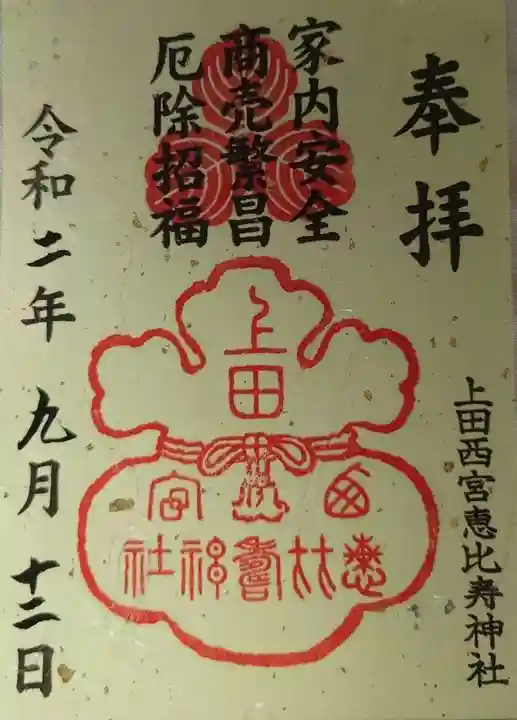 奉拝
家内安全
商売繁昌
厄除招福
上田
西宮
恵比寿神社
上田西宮恵比寿神社
令和二年九月十二日